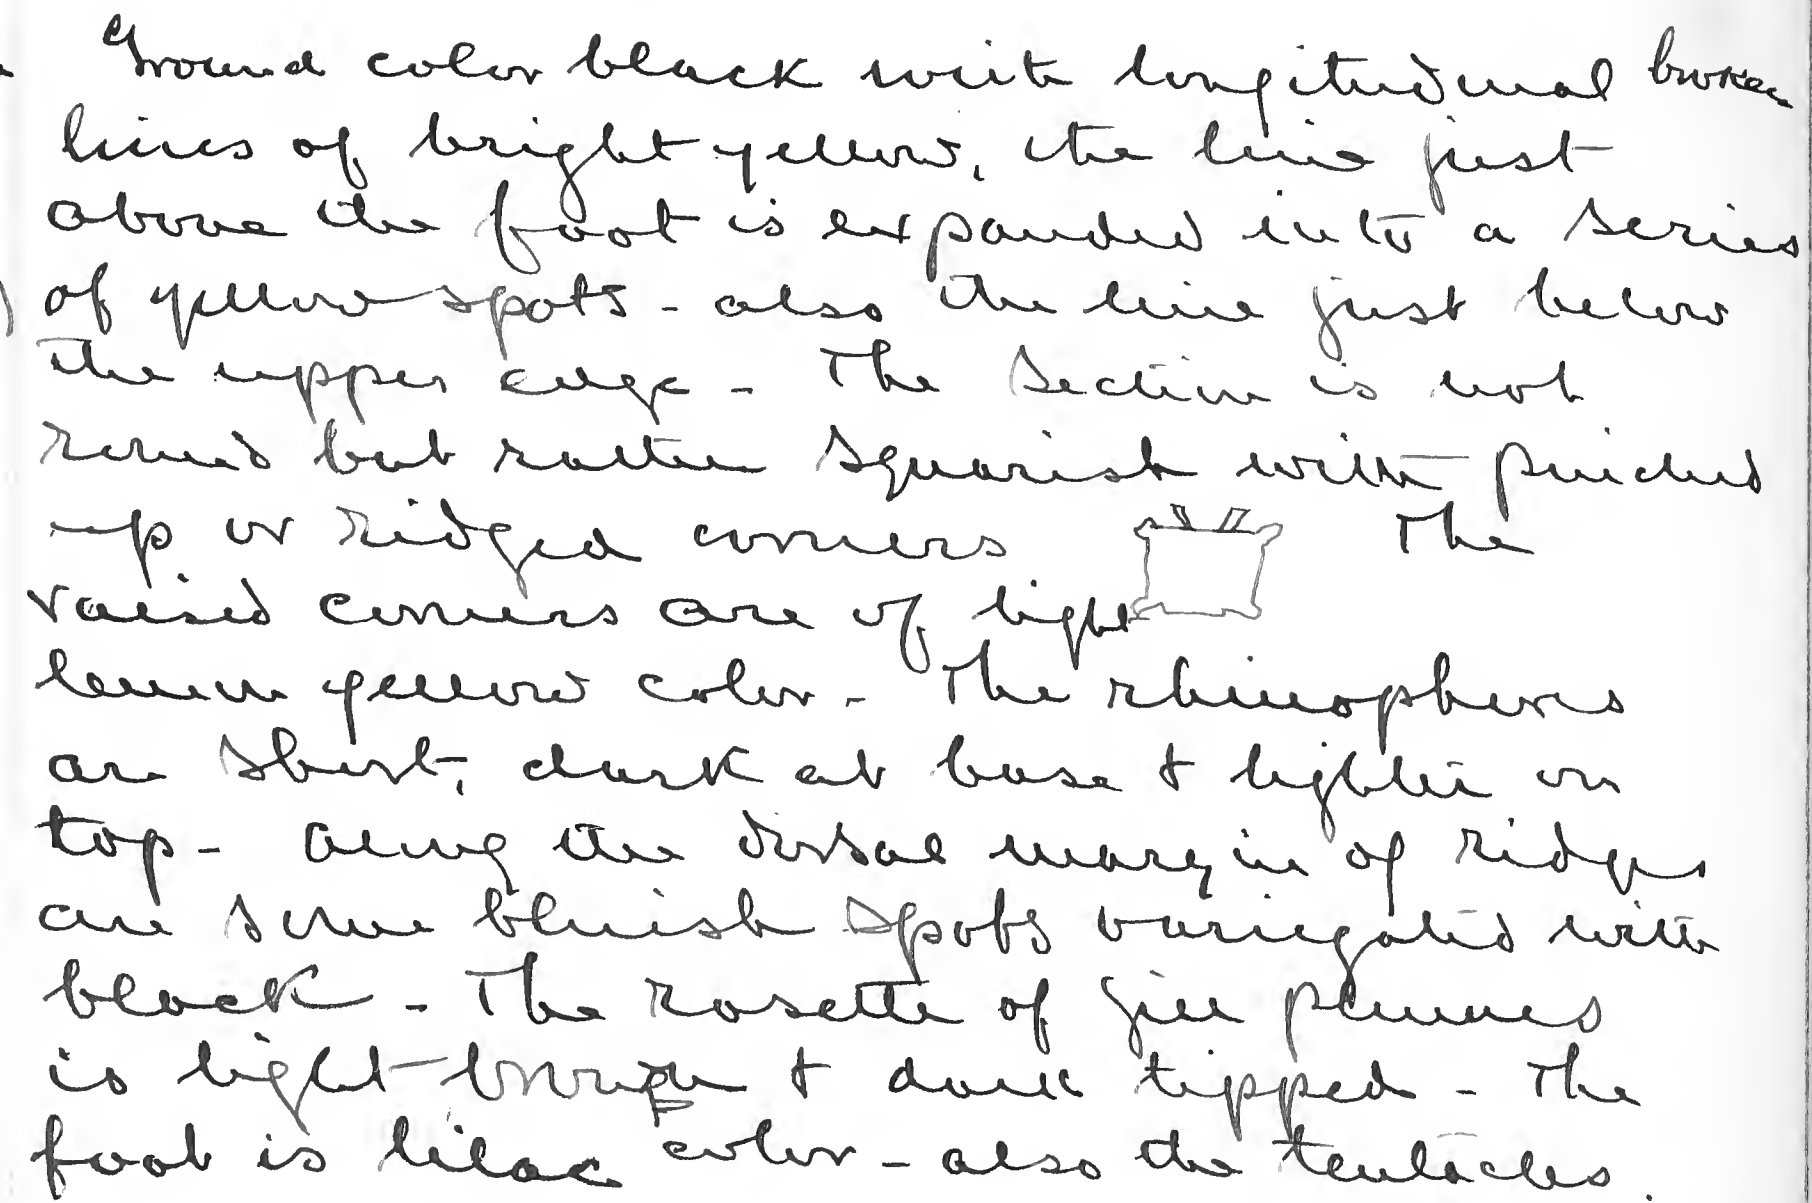 Ground color black with longitudinal broken
lines of bright yellow, the line just
above the foot is expanded into a series
of yellow spots - also the line just below
the upper edge - The section is not
round but rather squarish with pinched
up or ridged corners The
raised corners are of light
lemon yellow color - The rhinophores
are short, dark at base + lighter on
top - along the dorsal margin of ridges
are some bluish spots variegated with
black - The rosette of gill plumes
is light brown + dark tipped - The
foot is lilac color - also the tentacles.